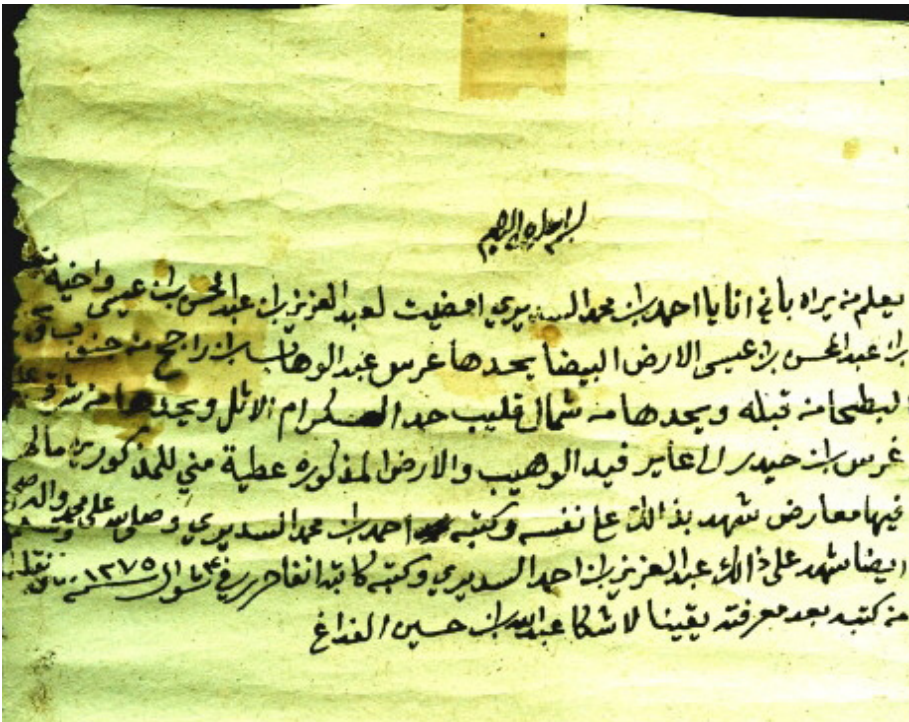 بسم الله الرحمن الرحيم
يعلم من يراه بأني انايا احمد بن محمد السديري امضيت لعبد العزيز بن عبد المحسن بن عيسى واخيه
بن عبد المحسن بن عيسى الارض البيضا يحدها غرس عبد الوهاب بن راجح من جنوب
البطحا من قبله ويحدها من شمال قليب حد الكرام الاثل ويحدها من شرق
غرس بن حيدر فيد الوهيب والارض المذكوره عطية مني للمذكورين مالي
فيها معارض شهد بذالك عا نفسه وكتبه احمد بن محمد السديري وصلى الله على محمد واله وصحبه وسلم
ايضا شهد على ذالك عبد العزيز بن احمد السديري وكتبه كاتبه انفا حرر في ٣ شوال سنة ١٢٧٥ نقله
من كتبه بعد معرفته يقينا لا شكا عبد الله بن حسين الفداغ